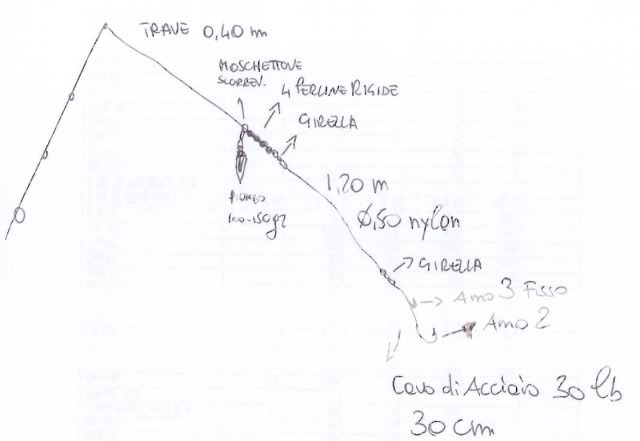 TRAVE 0,40 m
MOSCHETTONE
SCORREV.
4 PERLINE RIGIDE
GIRELLA
1,20 m
PIOMBO
100-150gr
Ø,50 nylon
GIRELLA
Amo 3 Fisso
Amo 2
Cavo di Acciaio 30 lb
30 cm